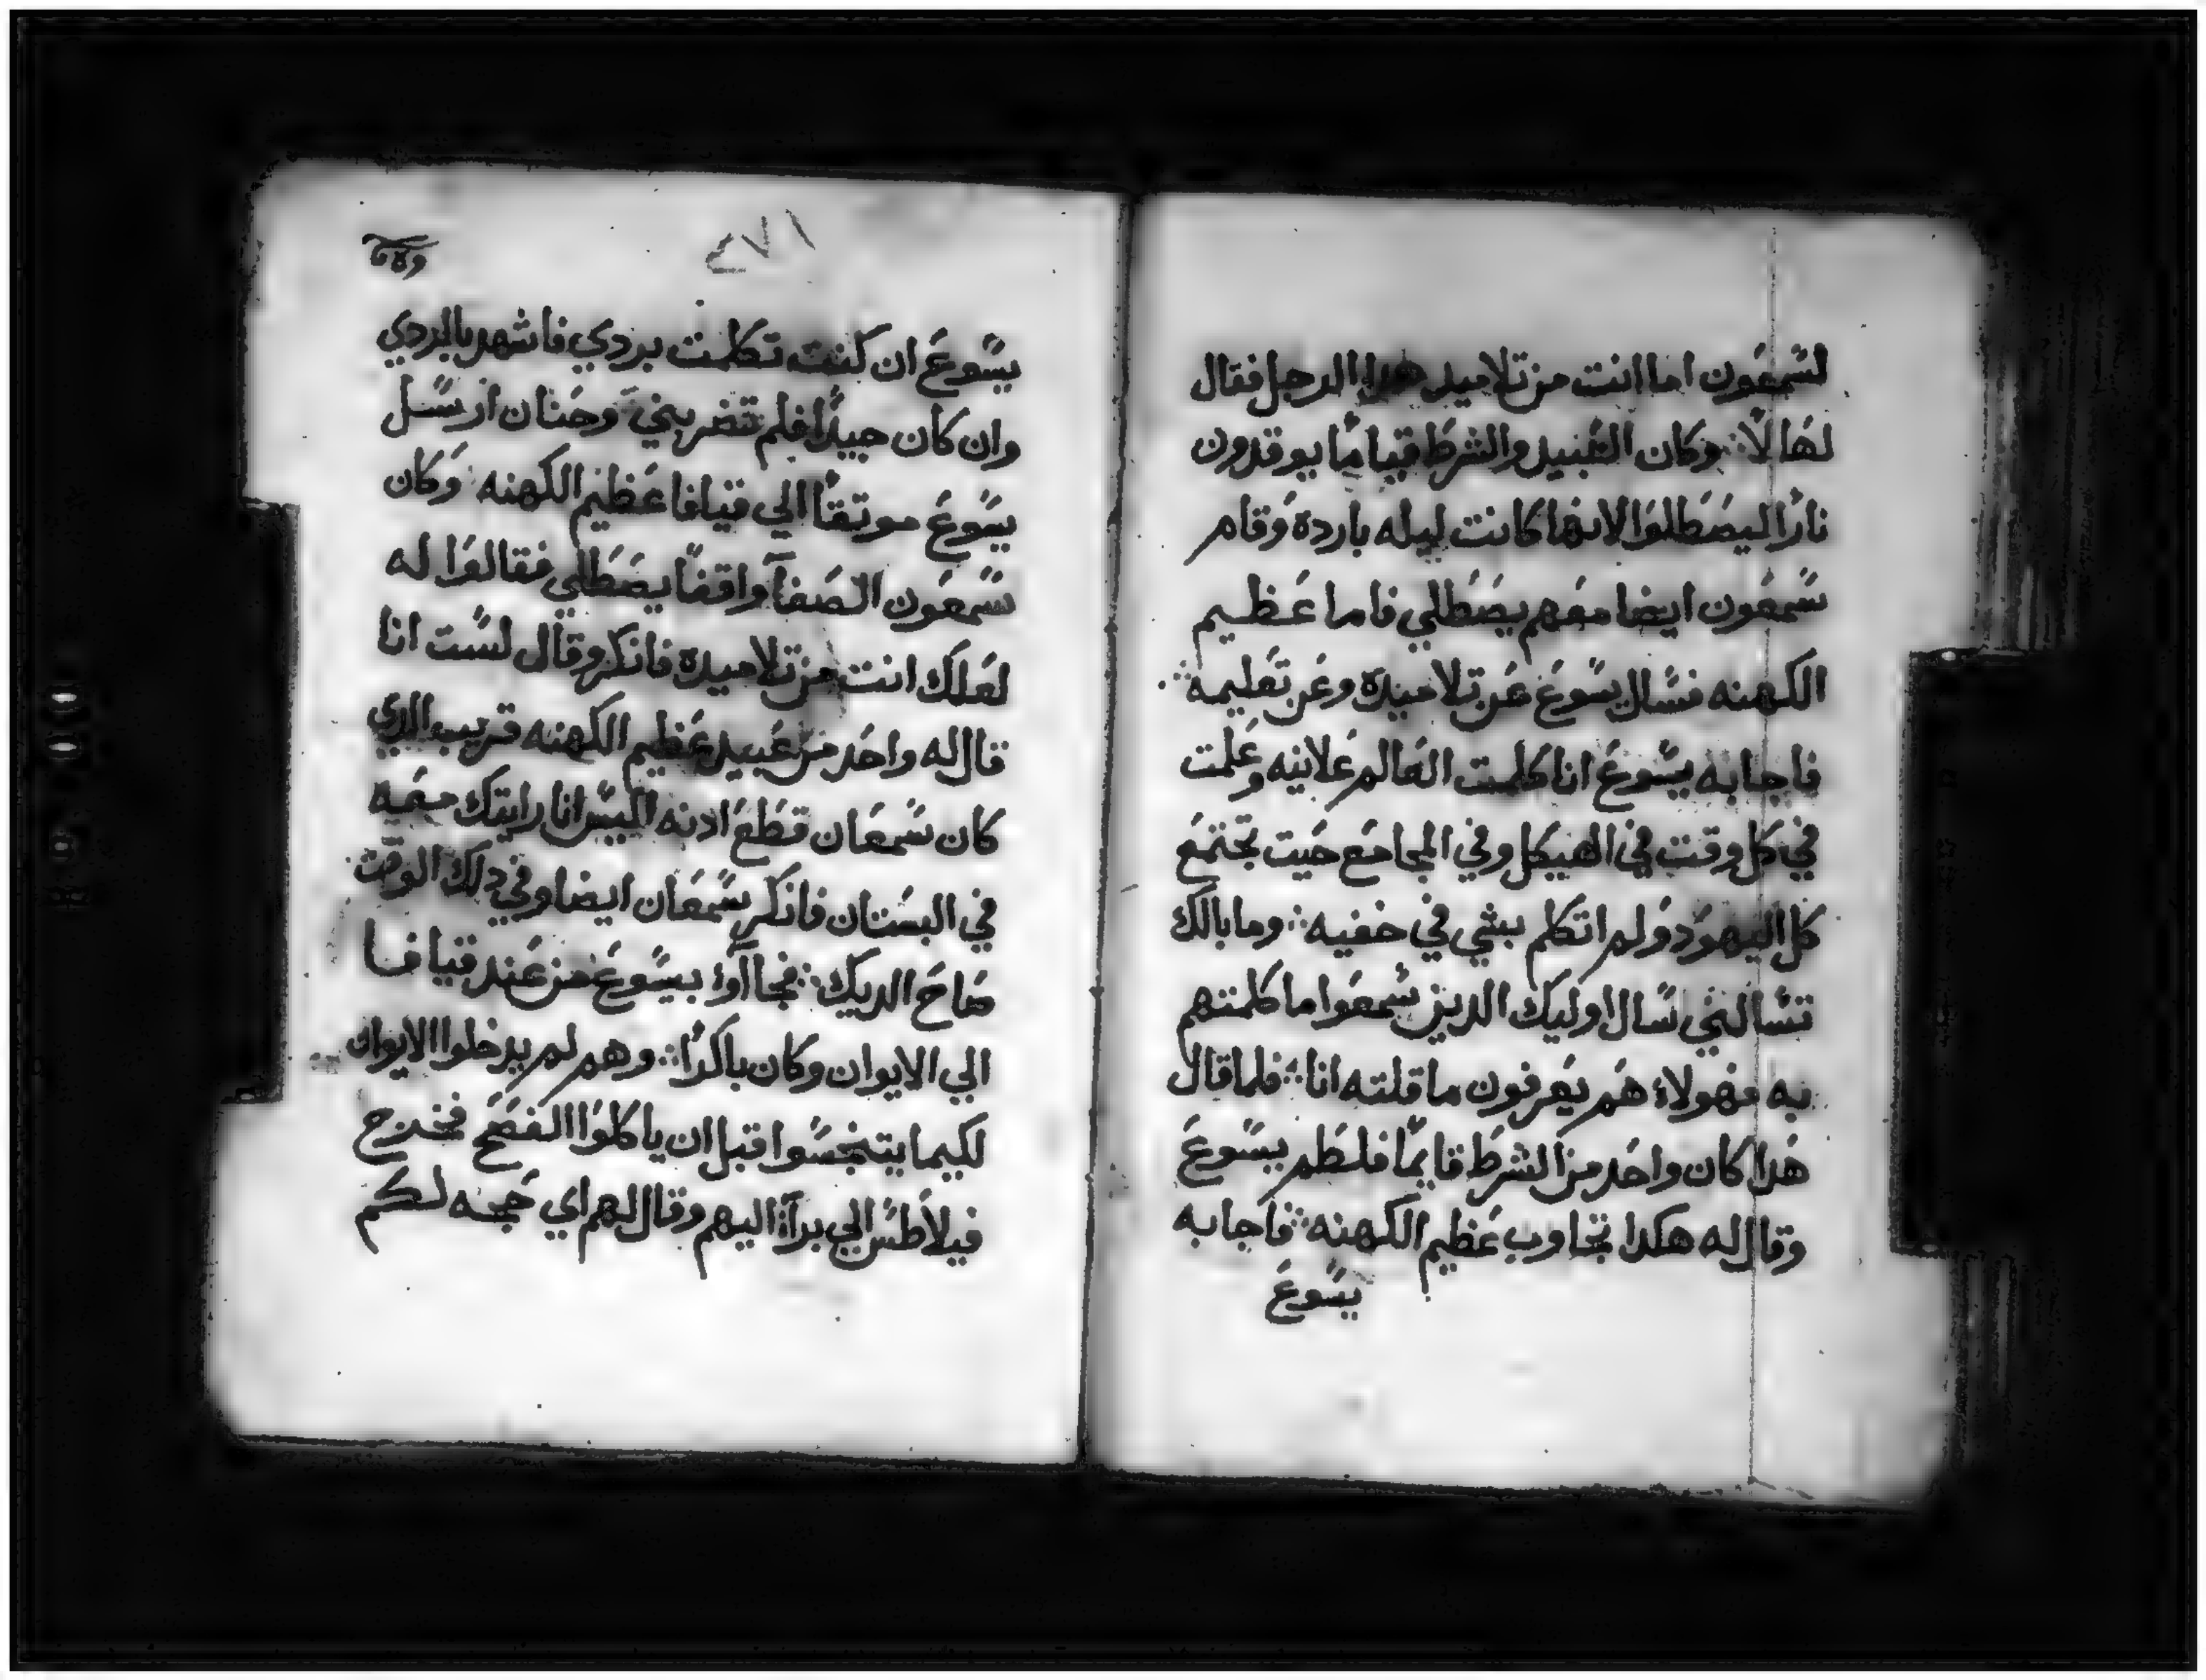 لشمعون اما انت من تلاميد هدا الرجل فقال
لها لا ۞ وكان العبيد والشرط قياما يوقدون
نارا ليصطلوا لانها كانت ليله بارده وقام
شمعون ايضا معهم يصطلي فاما عظيم
الكهنه فسال يسوع عن تلاميده وعن تعليمه ۞
فاجابه يسوع انا كلمت العالم علانيه وعلمت
في كل وقت في الهيكل وفي المجامع حيت تجتمع
كل اليهود ولم اتكلم بشي في خفيه ۞ وما بالك
تسالني سال اوليك الدين سمعوا ما كلمتهم
به فهولاء هم يعرفون ما قلته انا ۞ فلما قال
هدا كان واحد من الشرط قايما فلطم يسوع
وقال له هكدا تجاوب عظيم الكهنه ۞ فاجابه
يسوع
٤٧١
يسوع ان كنت تكلمت بردي فاشهد بالردي
وان كان جيدا فلم تضربني وحنان ارسل
يسوع موتقا الي قيافا عظيم الكهنه وكان
سمعون الصفا واقفا يصطلي فقالوا له
لعلك انت من تلاميده فانكر وقال لست انا
قال له واحد من عبيد عظيم الكهنه قريب الدي
كان سمعان قطع ادنه اليس انا رايتك معه
في البستان فانكر سمعان ايضا وفي دلك الوقت
صاح الديك ۞ فجاآوا بيسوع من عند قيافا
الي الايوان وكان باكرا ۞ وهم لم يدخلوا الايوان
لكيما يتنجسوا قبل ان ياكلوا الفصح فخرج
فيلاطس الي برآء اليهم وقال لهم اي حجه لكم